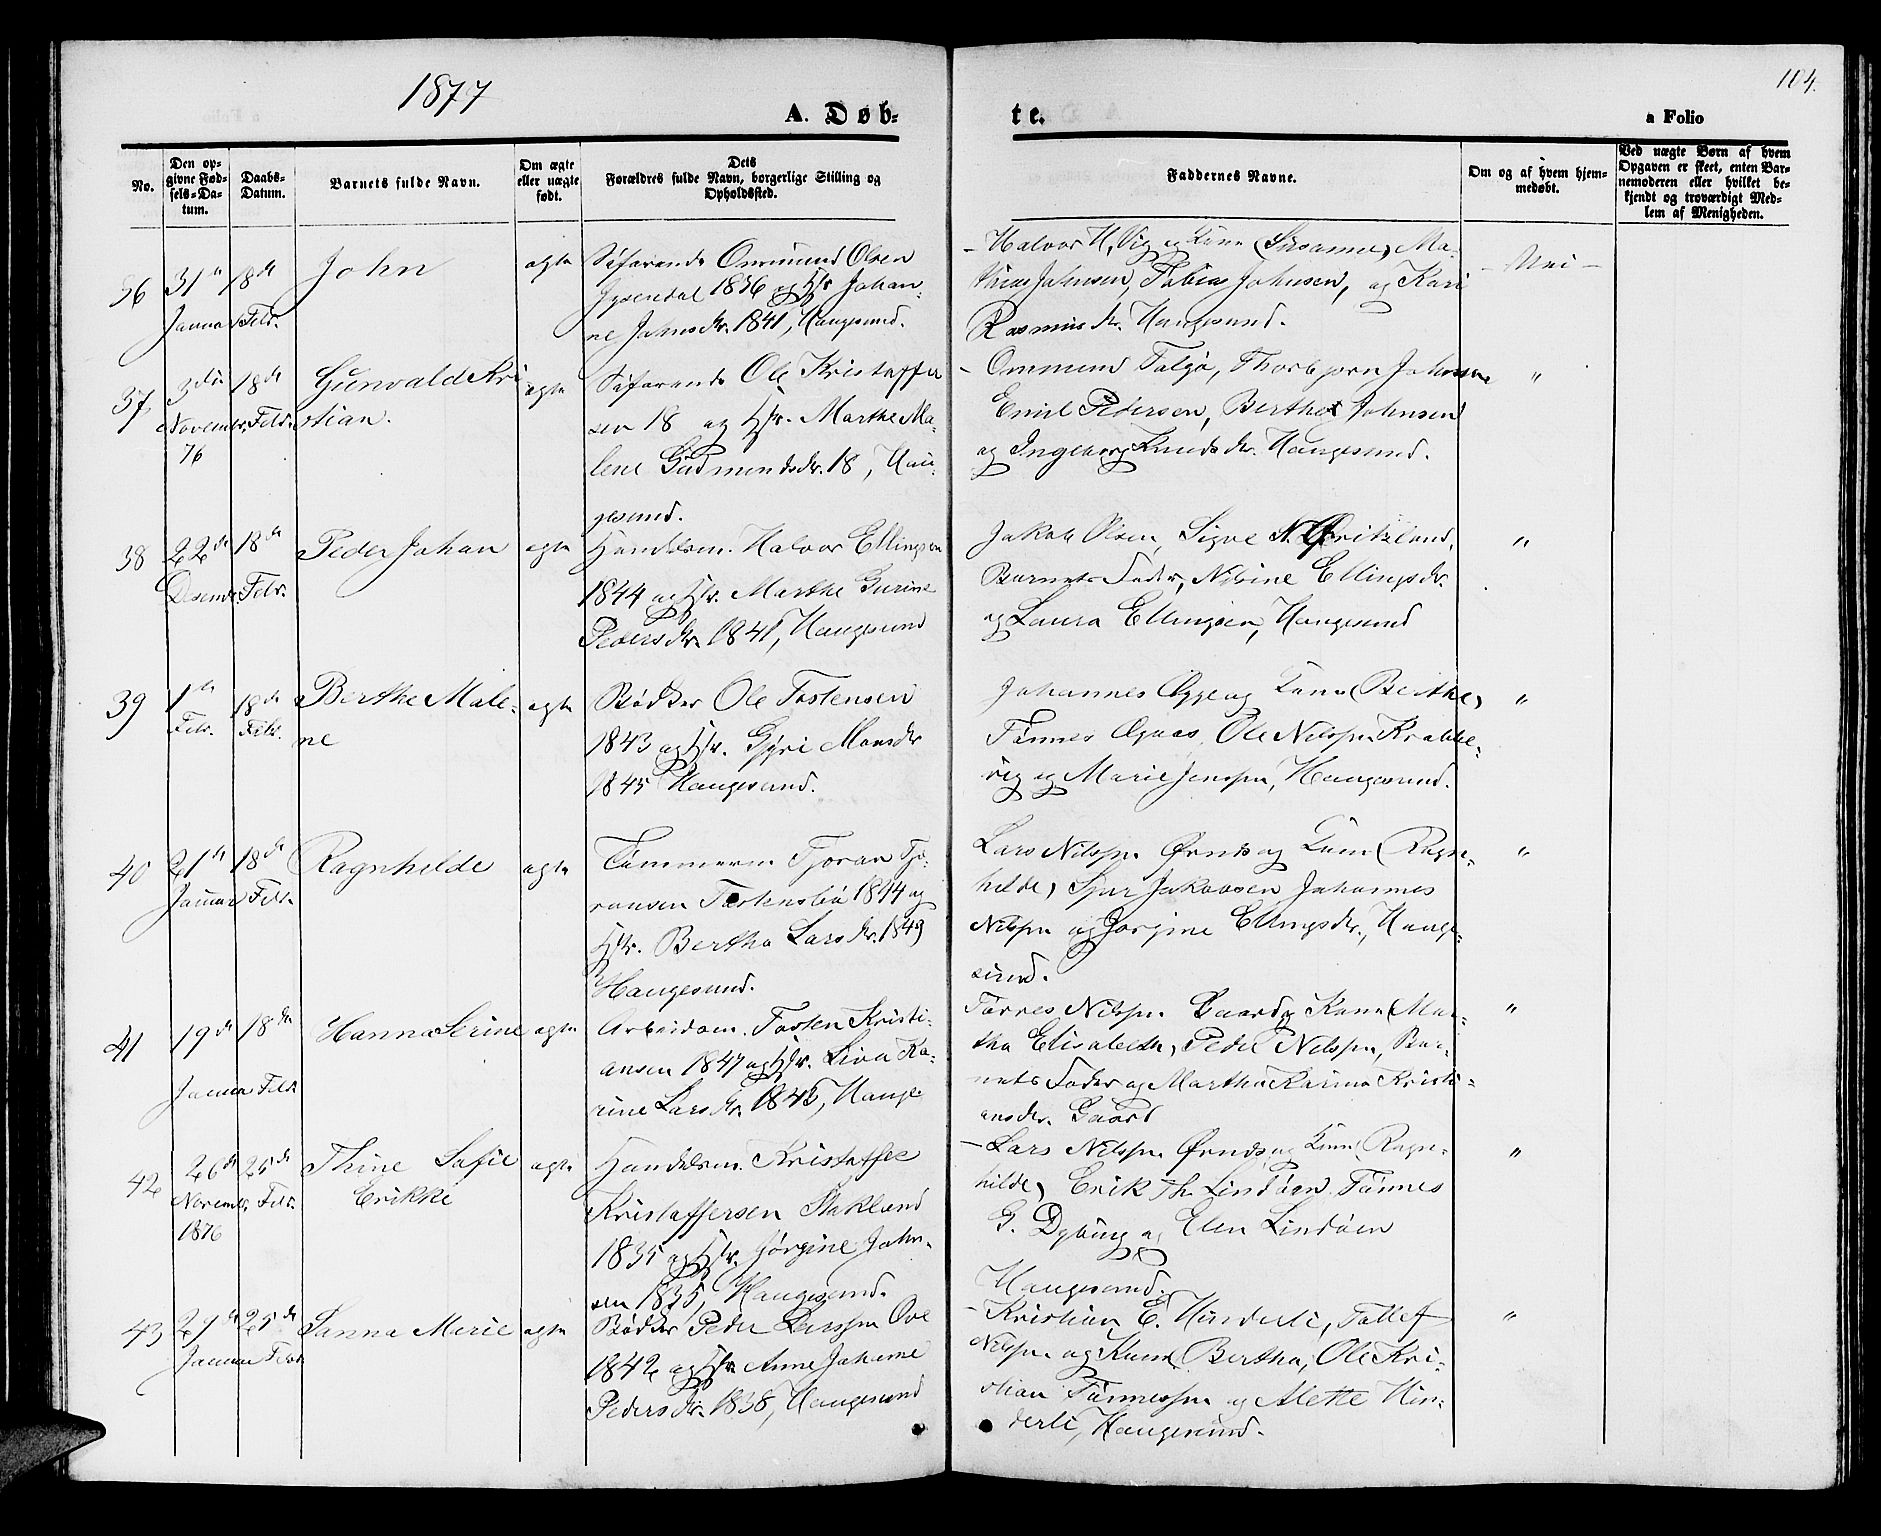 1877
104.
A. Døb-
te.
a Folio
No.
Den op-
givne Fød-
sels-Da-
tum.
Daabs-
Datum.
Barnets fulde Navn.
Om ægte
eller uægte
født.
Dets
Forældres fulde Navn, borgerlige Stilling og
Opholdssted.
Faddernes Navne.
Om og af hvem hjem-
medøbt.
Ved uægte Børn af hvem
Opgaven er skeet, enten Bar-
nemoderen eller hvilket be-
kjendt og troværdigt Med-
lem af Menigheden.
36 31te Januar
18de Febr.
John
ægte
Søfarende Ommund Olsen
1836 og Hstr Johan-
ne Johnsdtr. 1841, Haugesund.
Halvor H. Vig og Kone (Susanne) Ma-
thias Johnsen, Tobias Johnsen, og Kari
Rasmusdtr. Haugesund.
Nei
37 3die
Novembr.
76
18de Febr.
Gunvald Kri
stian.
ægte
Søfarende Ole Kristoffer
sen 18 og Hstr. Marthe Ma-
lene Gudmundsdr. 18, Hau-
gesund.
Ommund Talgø, Thorbjørn Johnsen
Emil Pedersen, Berthe Johnsen
og Ingeborg Knudsdtr. Haugesund.
"
38 22de
Desembr.
18de Febr.
Peder Johan
ægte
Handelsm. Halvor Ellingsen
1844 og Hstr. Marthe Gurine
Pedersdtr. 1841, Haugesund
Jakob Olsen, Signe N.
Barnets Fader, Nilsine Ellingsdr.
og Laura Ellingsen, Haugesund
"
39 1ste
Febr.
18de
Febr.
Berthe Male-
ne
ægte
Bødker Ole Tostensen
1843 og Hstr. Gyri Monsdr
1845 Haugesund.
Johannes og Kone (Berthe)
Tønnes Ole Nilssen Krabbe-
vig og Marie Jenssen, Haugesund.
"
40 21de
Januar
18de
Febr.
Ragnhilde
ægte
Tømmerm. Tjoran Tjo-
ransen 1844 og
Hstr. Bertha Larsdr. 1849
Haugesund.
Lars Nilssen Ørnes og Kone (Ragn-
hilde) Sjur Jakobsen Johannes
Nilssen og Jorgine Ellingsdr., Hauge-
sund.
"
41 19de
Januar
18de
Febr.
Hanna Serine
ægte
Arbeidsm. Tosten Kristi-
ansen 1847 og Hstr. Liva Ka-
rine Larsdtr. 1843, Hauge
Torres Nilssen Gaard og Kone (Mar-
tha Elisabeth, Peder Nilssen, Bar-
nets Fader og Martha Karina Kristi-
ansdr. Gaard
"
42 26de
Novembr.
1876
25de
Febr.
Thine Sofie
Erikke
ægte
Handelsm. Kristoffer
Kristoffersen Stakland
1835 og Hstr. Jørgine John-
sen 1835, Haugesund.
Lars Nilssen Ørnes og Kone (Ragn-
hilde) Erik Th. Lindøen Tønnes
G. Dybing og Elen Lindøen
Haugesund.
"
43 29de
Januar
25de
Febr.
Sanna Marie
ægte
Bødker Peder Larssen
1842 og Hstr Anne Johanne
Pedersdr. 1838, Haugesund
Kristian E. Hinderli, Tollef
Nilssen og Kone Bertha, Ole Kri-
stian Tønnessen og Alette Hin-
derli, Haugesund.
"